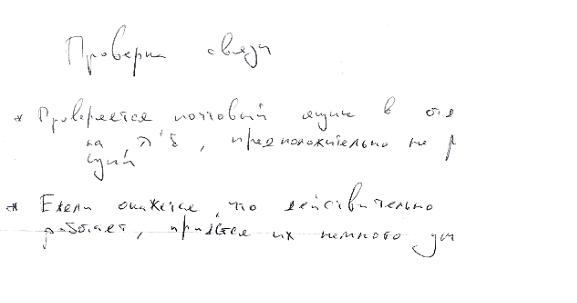 Проверка связи
* Проверяется почтовый ящик в
на , предположительно не
щий
* Если окажется, что действительно
работает, придётся их немного